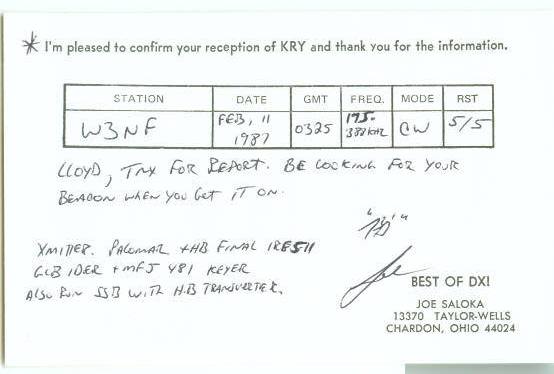 * I'm pleased to confirm your reception of KRY and thank you for the information.
STATION DATE GMT FREQ. MODE RST
W3NF FEB, 11 1987 0325 175. KHz CW 5/5
LLOYD, TNX FOR REPORT. BE LOOKING FOR YOUR
BEACON WHEN YOU GET IT ON.
XMITTER. PALOMAR + HB FINAL IRF511
GLB IDER + MFJ 481 KEYER
ALSO RUN SSB WITH H.B TRANSVERTER.
"73"
Joe
BEST OF DX!
JOE SALOKA
13370 TAYLOR-WELLS
CHARDON, OHIO 44024